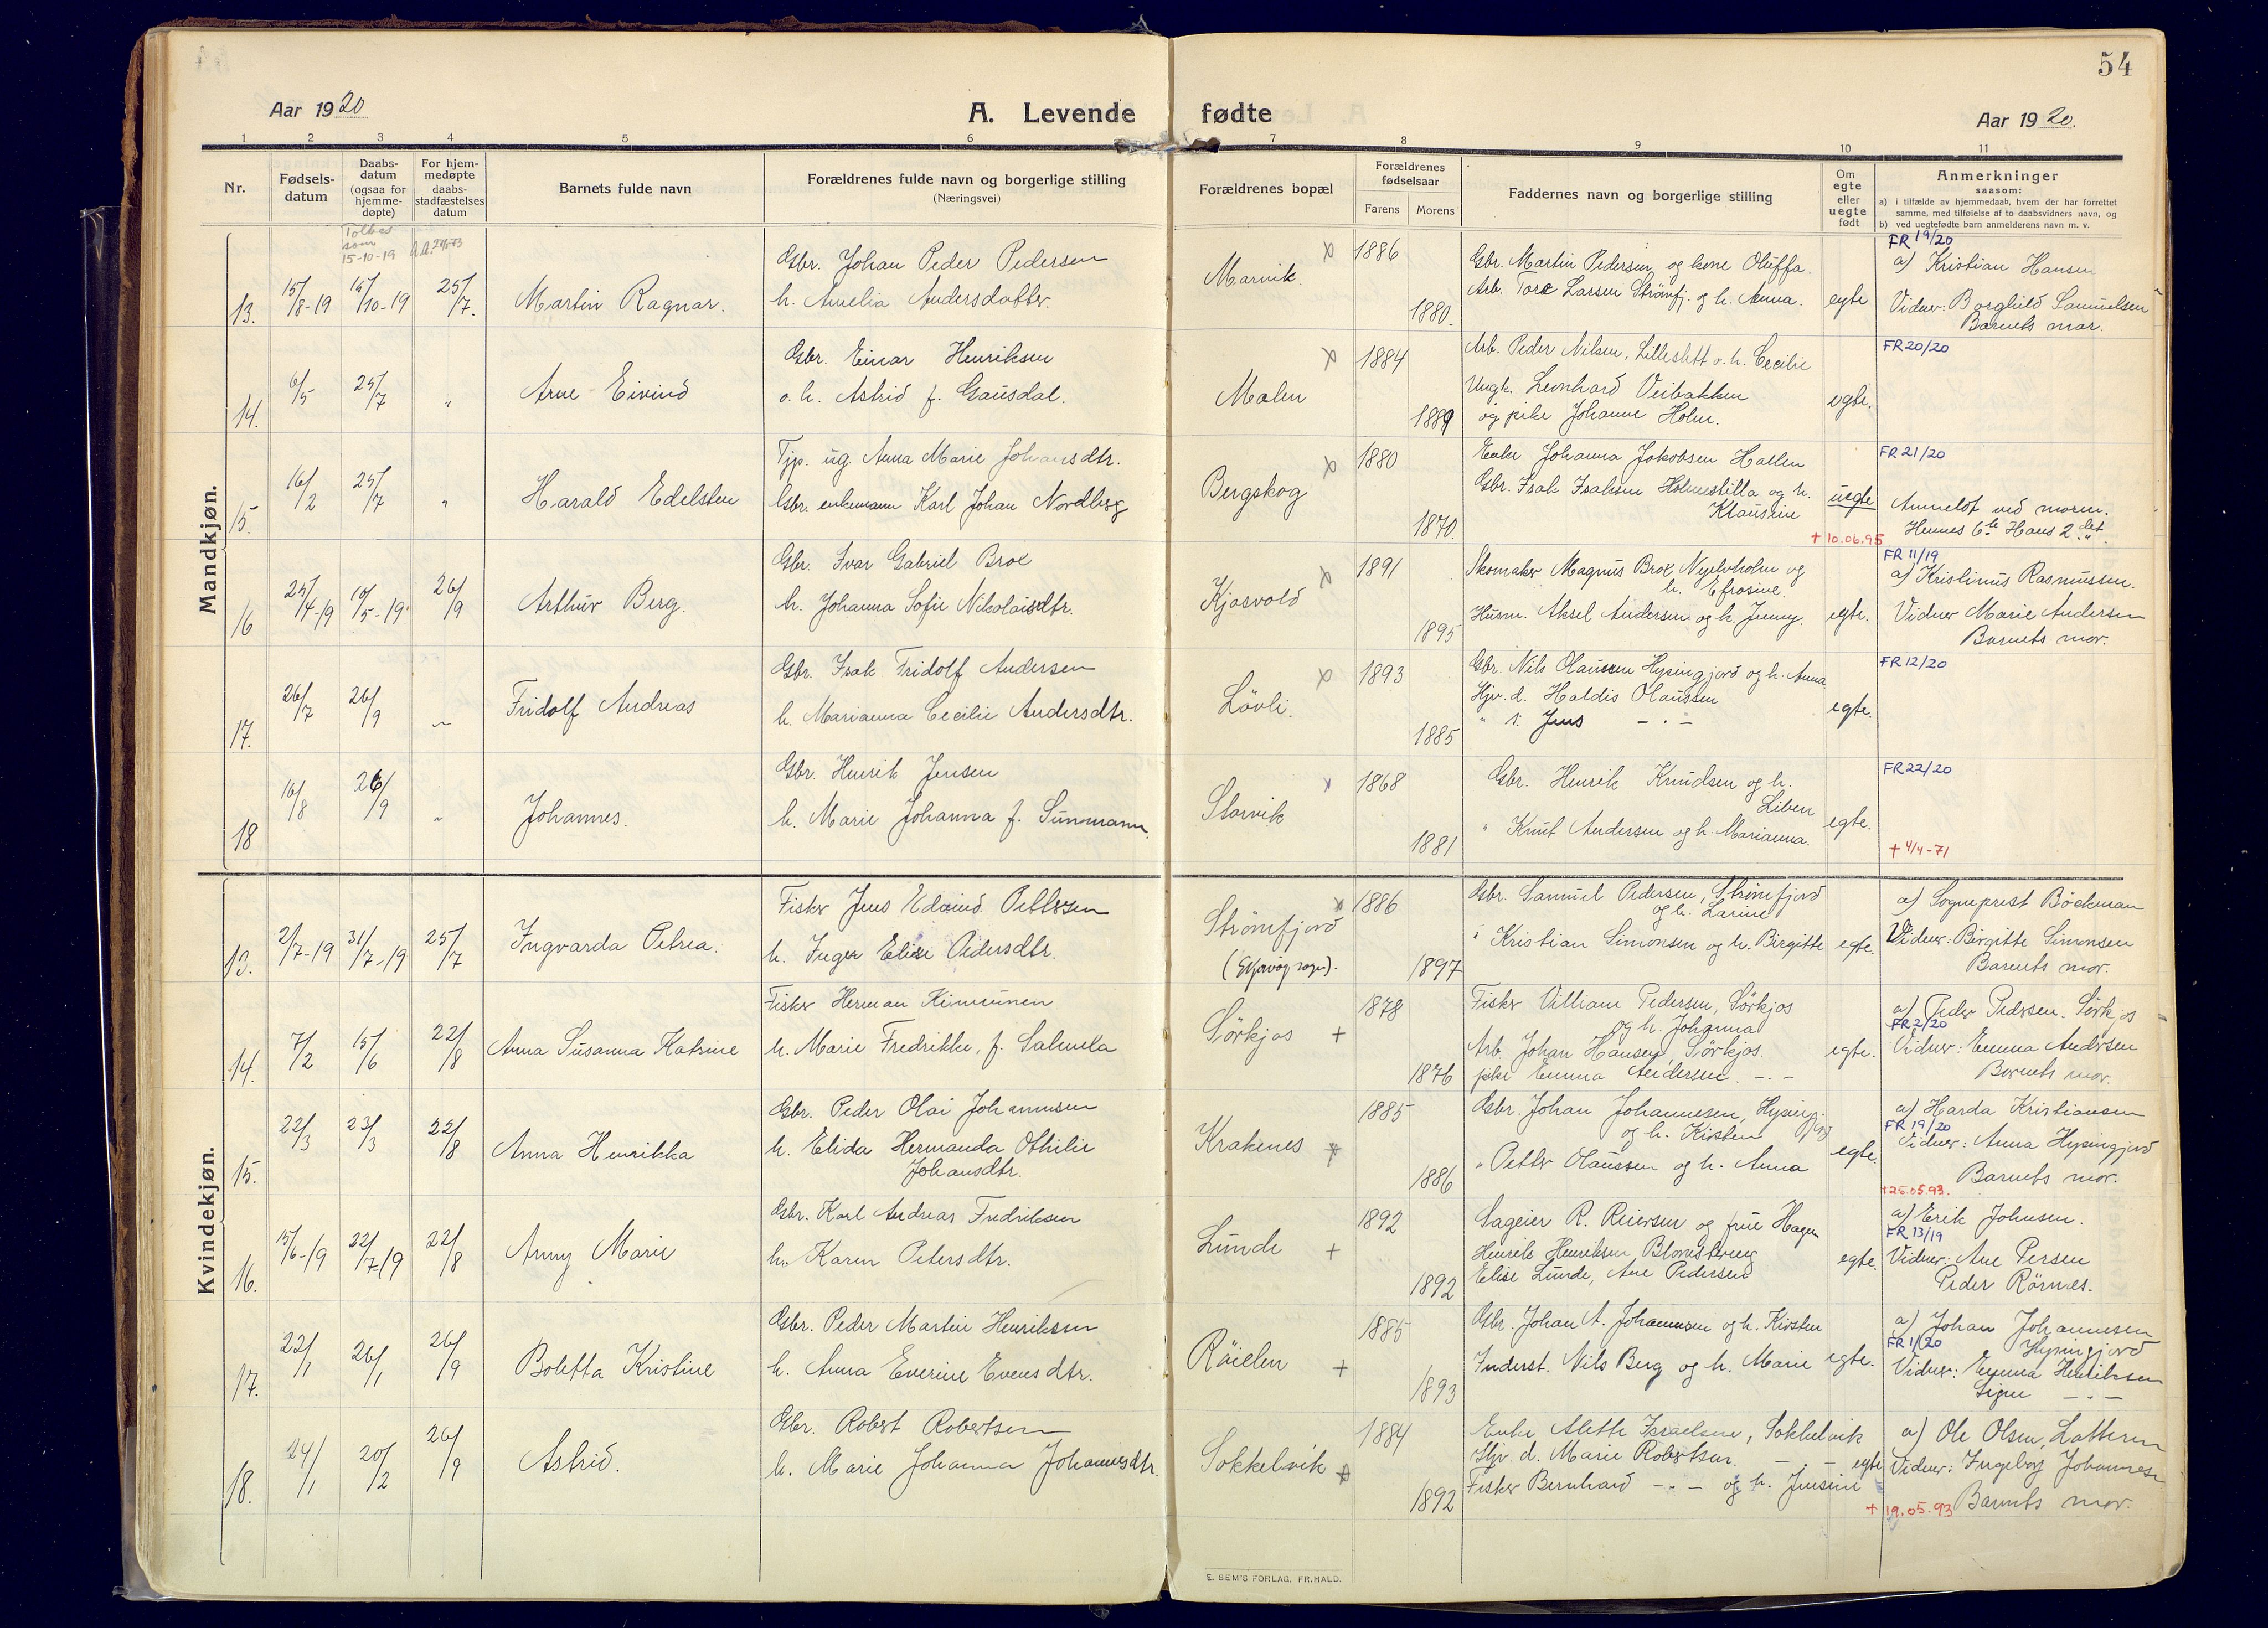 54
Aar 1920
A. Levende fødte
Aar 1920.
1 2 3 4 5 6 7 8 9 10 11
Nr.
Fødsels-
datum
Daabs-
datum
(ogsaa for
hjemme-
døpte)
For hjem-
medøpte
daabs-
stadfæstelses
datum
Barnets fulde navn
Forældrenes fulde navn og borgerlige stilling
(Næringsvei)
Forældrenes bopæl
Forældrenes
fødselsaar
Farens Morens
Faddernes navn og borgerlige stilling
Om
egte
eller
uegte
født
Anmerkninger
saasom:
a) i tilfælde av hjemmedaab, hvem der har forrettet
samme, med tilføielse af to daabsvidners navn, og
b) ved uegtefødte barn anmelderens navn m. v.
Mandkjøn.
Tolkes
som
15-10-19
13. 15/8-19 15/10-19 25/7. Martin Ragnar.
Gbr. Johan Peder Pedersen
h. Amelia Andersdatter.
Marvik. 1886 1880.
Gbr. Martin Pedersen og kone Oluffa.
Arb. Tore Larsen Strömfj. og h. Anna.
egte
FR 19/20
a) Kristian Hansen
Vidner: Borghild Samuelsen
Barnets mor.
14. 6/5 25/7 " Arne Eivind
Gbr. Einar Henriksen
o. h. Astrid f. Gausdal.
Molen 1884 1889
Arb. Peder Nilsen, Lilleslett o. h. Cecilie
Ungk. Leonhard Veibakken
og pike Johanne Holm.
egte.
FR 20/20
15. 16/2 25/7 " Harald Edelsten
Tjp. ug. Anna Marie Johansdtr.
Gbr. enkemann Karl Johan Nordberg
Bergskog 1880 1870.
Enke Johanna Jakobsen Hallen
Gbr. Isak Isaksen Holmestilla og h.
Klausine
uegte
+ 10.06.95
FR 21/20
Anmeldt ved moren.
Hennes 6te Hans 2det.
16 25/4-19 10/5-19 26/9 Arthur Berg.
Gbr. Ivar Gabriel Broe
h. Johanna Sofie Nikolaisdtr.
Kjosvold 1891 1895
Skomaker Magnus Broe Nyelvholm og
h. Efrosine.
Husm. Aksel Andersen og h. Jenny.
egte.
FR 11/19
a) Kristinus Rasmussen.
Vidner Marie Andersen
Barnets mor.
17. 26/7 26/9 " Fridolf Andreas
Gbr. Isak Fridolf Andersen
h. Marianna Cecilie Andersdtr.
Lövli. 1893 1885
Gbr. Nils Olaussen Hysingjord og h. Anna
Hjv. d. Haldis Olaussen
" s. Jens — " —
egte.
FR 12/20
18 16/8 26/9 " Johannes.
Gbr. Henrik Jensen
h. Marie Johanna f. Sunmann.
Storvik 1868 1881
Gbr. Henrik Knudsen og h.
Liben
" Knut Andersen og h. Marianna.
egte.
FR 22/20
+ 4/4-71
Kvindekjøn.
13. 2/7-19 31/7-19 25/7 Ingvarda Petrea.
Fisker Jens Edvind Pettersen
h. Inger Elise Pedersdtr.
Strömfjord
1886 1897
Gbr. Samuel Pedersen, Strömfjord
og h. Larine
" Kristian Simonsen og h. Birgitte
egte.
a) Sogneprest Böckman
Vidner: Birgitte Simonsen
Barnets mor.
14. 7/2 15/6 22/8 Anna Susanna Katrine
Fisker Herman Kimunen
h. Marie Fredrikke, f. Salmela
Sörkjos + 1878 1876
Fisker Villiam Pedersen, Sörkjos
og h. Johanna
Arb. Johan Hansen, Sörkjos.
pike Emma Andersen. — " —
egte.
a) Peder Pedersen. Sörkjos
FR 2/20
Vidner: Emma Andersen
Barnets mor.
15. 22/3 23/3 22/8 Anna Henrikka
Gbr. Peder Olai Johannesen
h. Elida Hermanda Othilie
Johansdtr.
Krakenes + 1885 1886
Gbr. Johan Johannesen, Hysingjord
og h. Kirsten
" Petter Olaussen og h. Anna
egte.
a) Harda Kristiansen
FR 19/20
Vidner: Anna Hysingjord
Barnets mor.
+25.05.93.
16. 15/6-19 22/7-19 22/8 Anny Marie
Gbr. Karl Andreas Fredriksen
h. Karen Petersdtr.
Lunde + 1892 1892
Sageier R. Reiersen og frue Hagen
Henrik Henriksen Blomstereng
Elise Lunde, Ane Pedersen
egte.
a) Erik Johnsen.
FR 13/19
Vidner: Ane Persen
Peder Rörnes.
17. 22/1 26/1 26/9 Boletta Kristine
Gbr. Peder Martin Henriksen
h. Anna Everine Evensdtr.
Röielen + 1885 1893
Gbr. Johan A. Johannesen og h. Kirsten
Inderst. Nils Berg og h. Marie
egte.
a) Johan Johannesen
Hysingjord
FR 1/20
Vidner: Emma Henriksen
Signe — " —
18. 24/1 20/2 26/9 Astrid.
Gbr. Robert Robertsen
h. Marie Johanna Johannesdtr.
Sokkelvik + 1884 1892
Enke Alette Israelsen, Sokkelvik
Hjv. d. Marie Robertsen. — " —
Fisker Bernhard — " — og h. Jensine
egte
a) Ole Olsen, Latteren
Vidner: Ingeborg Johannesen
Barnets mor.
+ 19.05.93
E. SEM'S FORLAG, FR.HALD.